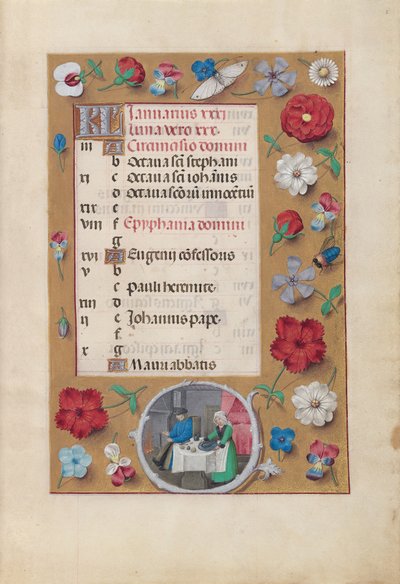 KL Januarius xxxj
Luna vero xxx.
iii A Circumcisio domini
b Octaua sc̃i stephani
xi c Octaua sc̃i ioh̃anis
d Octaua sc̃orũ innocẽtiũ
xix e
viii f Epyphania domini
g
xvi A Eugenii cõfessoris
v b
c Pauli heremite.
xiii d
ii e Johannis pape.
f
x g
A Mauri abbatis